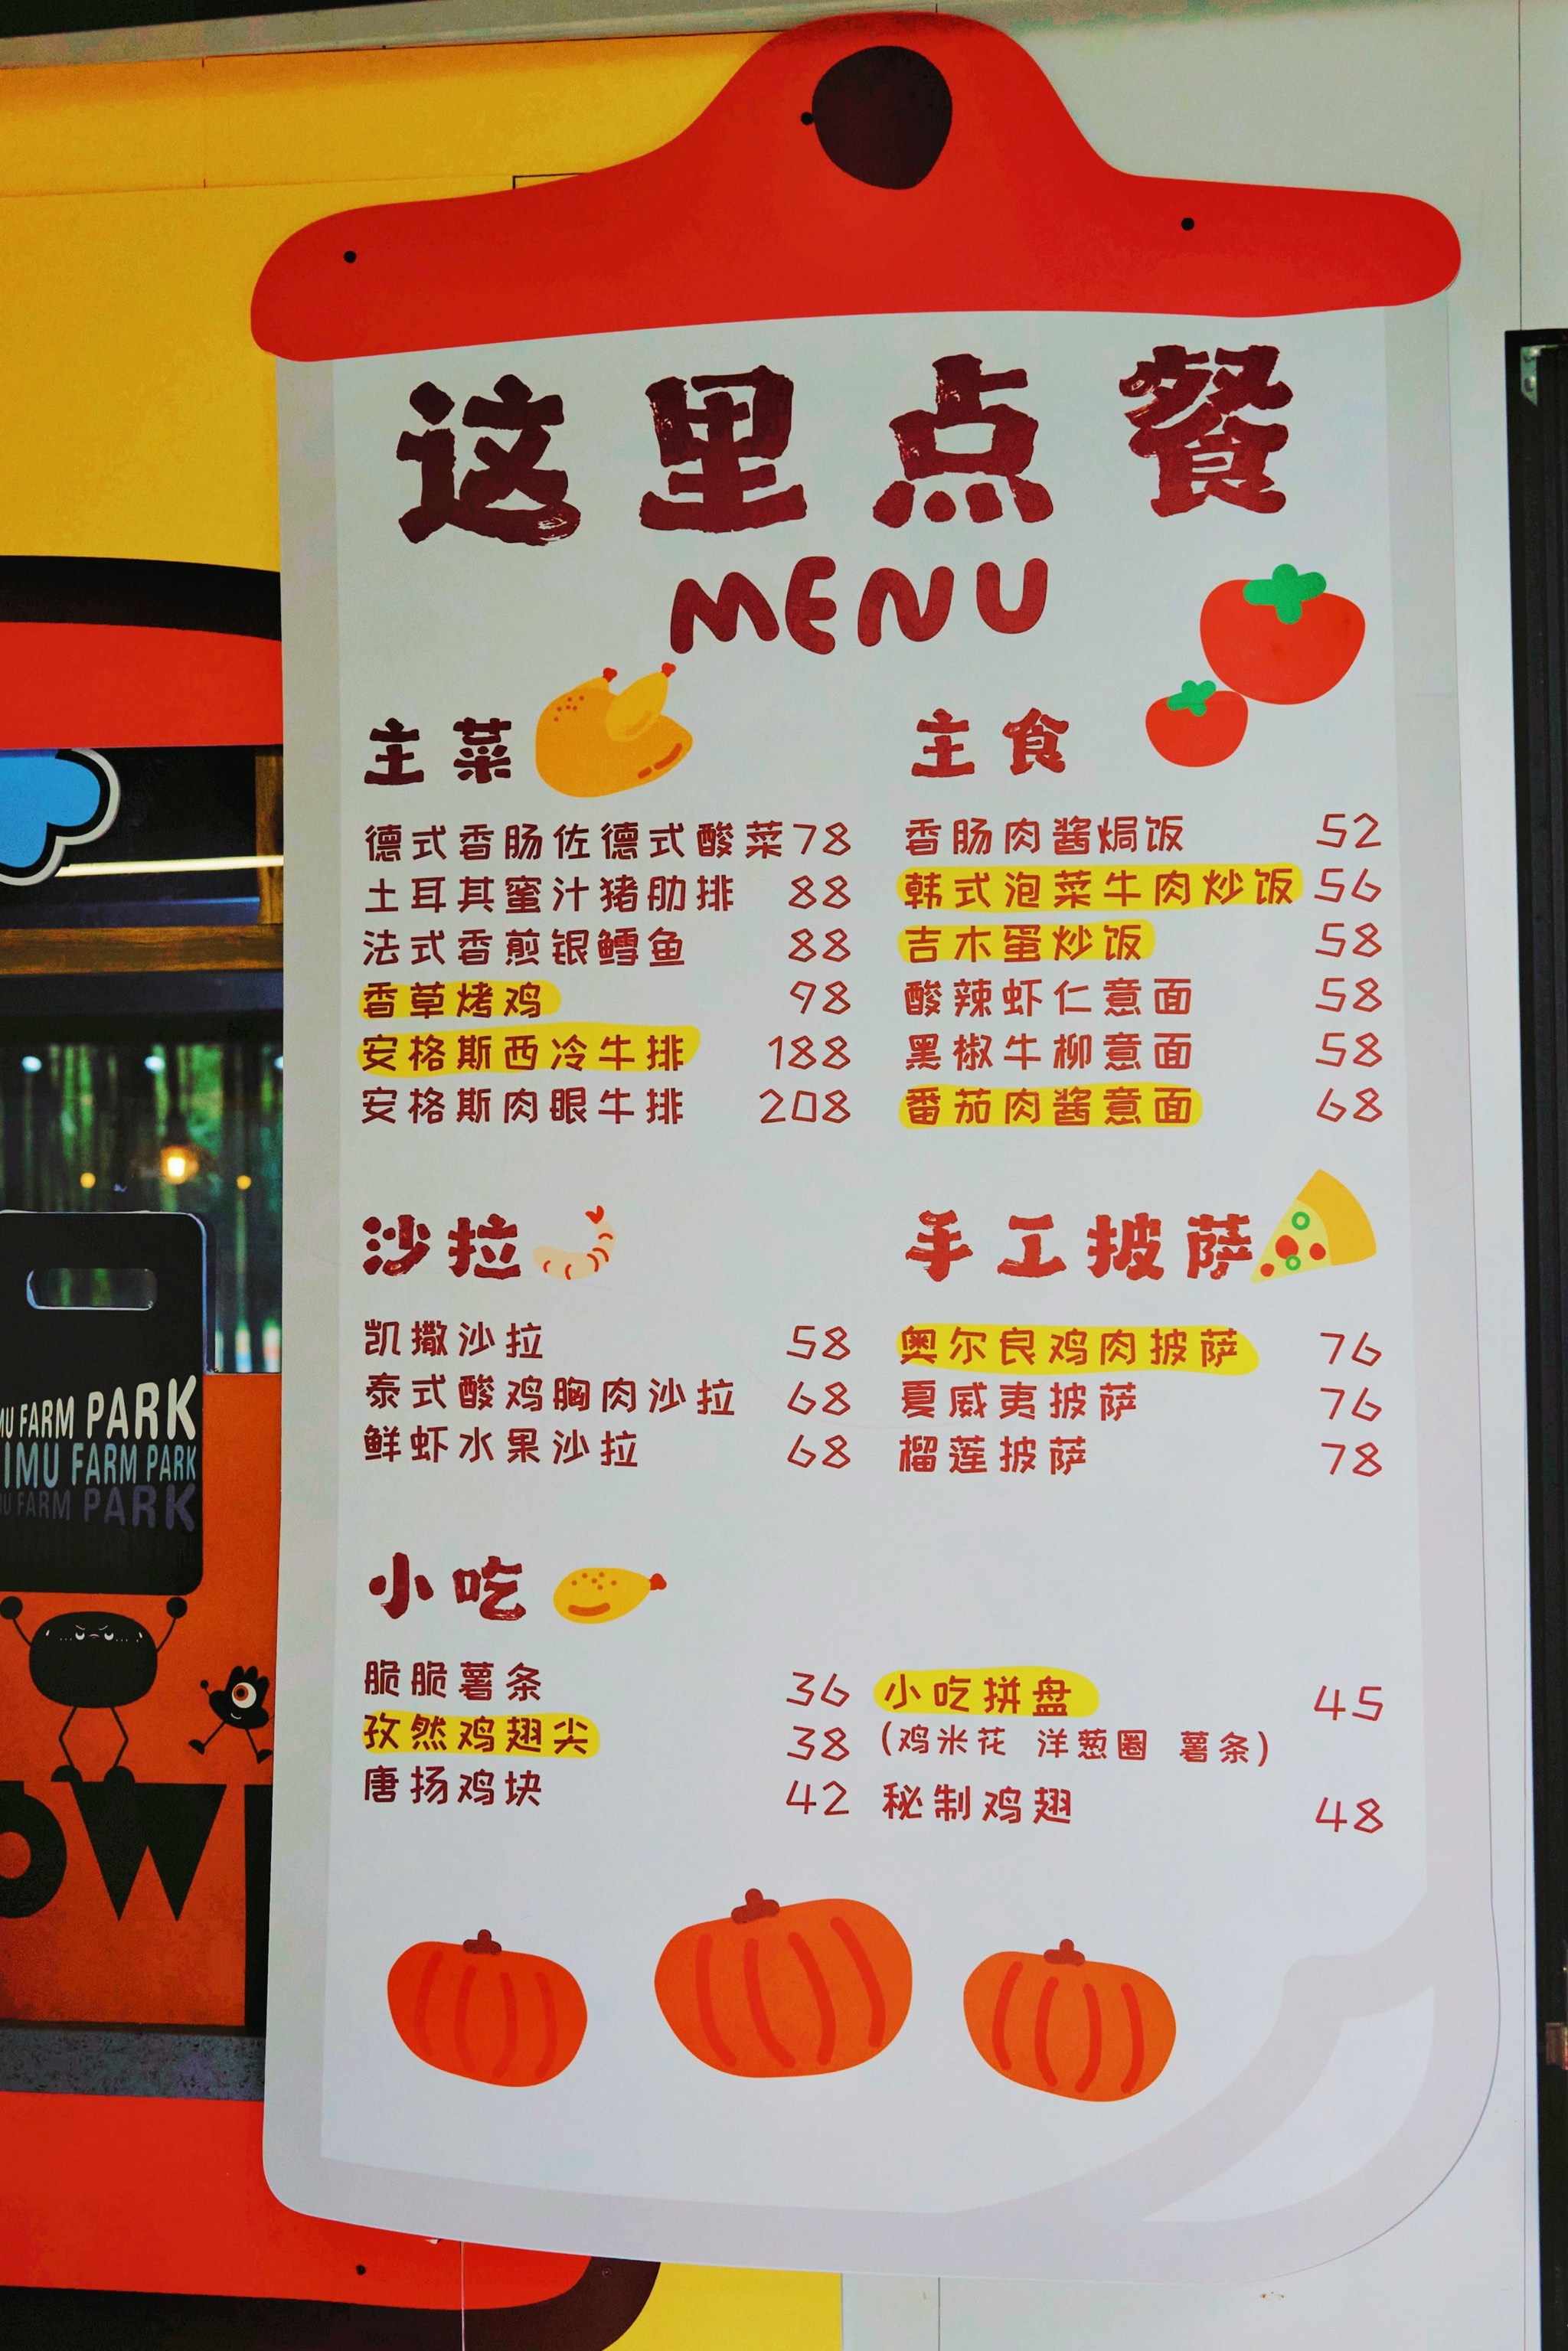 这里点餐
MENU
主菜
德式香肠佐德式酸菜 78
土耳其蜜汁猪肋排 88
法式香煎银鳕鱼 88
香草烤鸡 98
安格斯西冷牛排 188
安格斯肉眼牛排 208
主食
香肠肉酱焗饭 52
韩式泡菜牛肉炒饭 56
吉木蛋炒饭 58
酸辣虾仁意面 58
黑椒牛柳意面 58
番茄肉酱意面 68
沙拉
凯撒沙拉 58
泰式酸鸡胸肉沙拉 68
鲜虾水果沙拉 68
手工披萨
奥尔良鸡肉披萨 76
夏威夷披萨 76
榴莲披萨 78
小吃
脆脆薯条 36
孜然鸡翅尖 38
唐扬鸡块 42
小吃拼盘 45
(鸡米花 洋葱圈 薯条)
秘制鸡翅 48
MU FARM PARK
IMU FARM PARK
MU FARM PARK